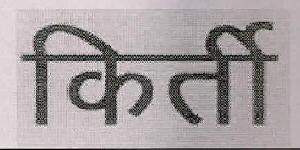 किर्ती